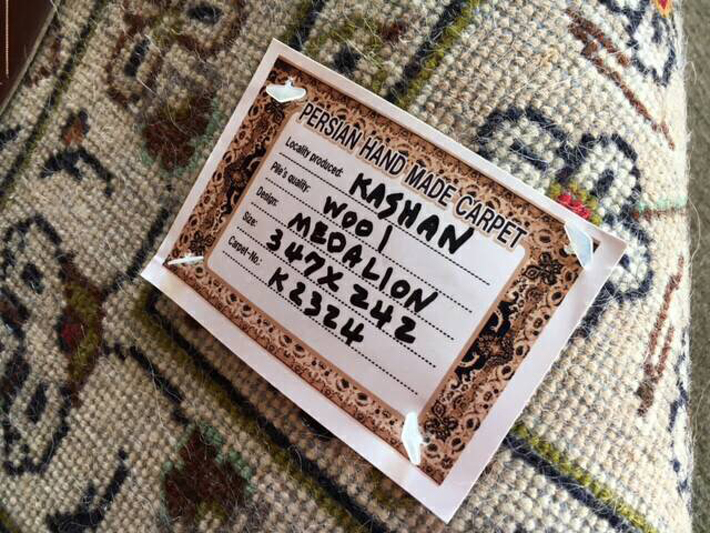 PERSIAN HAND MADE CARPET
Locality produced: KASHAN
Pile's quality: WOOl
Design: MEDALION
Size: 347X242
Carpet-No.: K2324